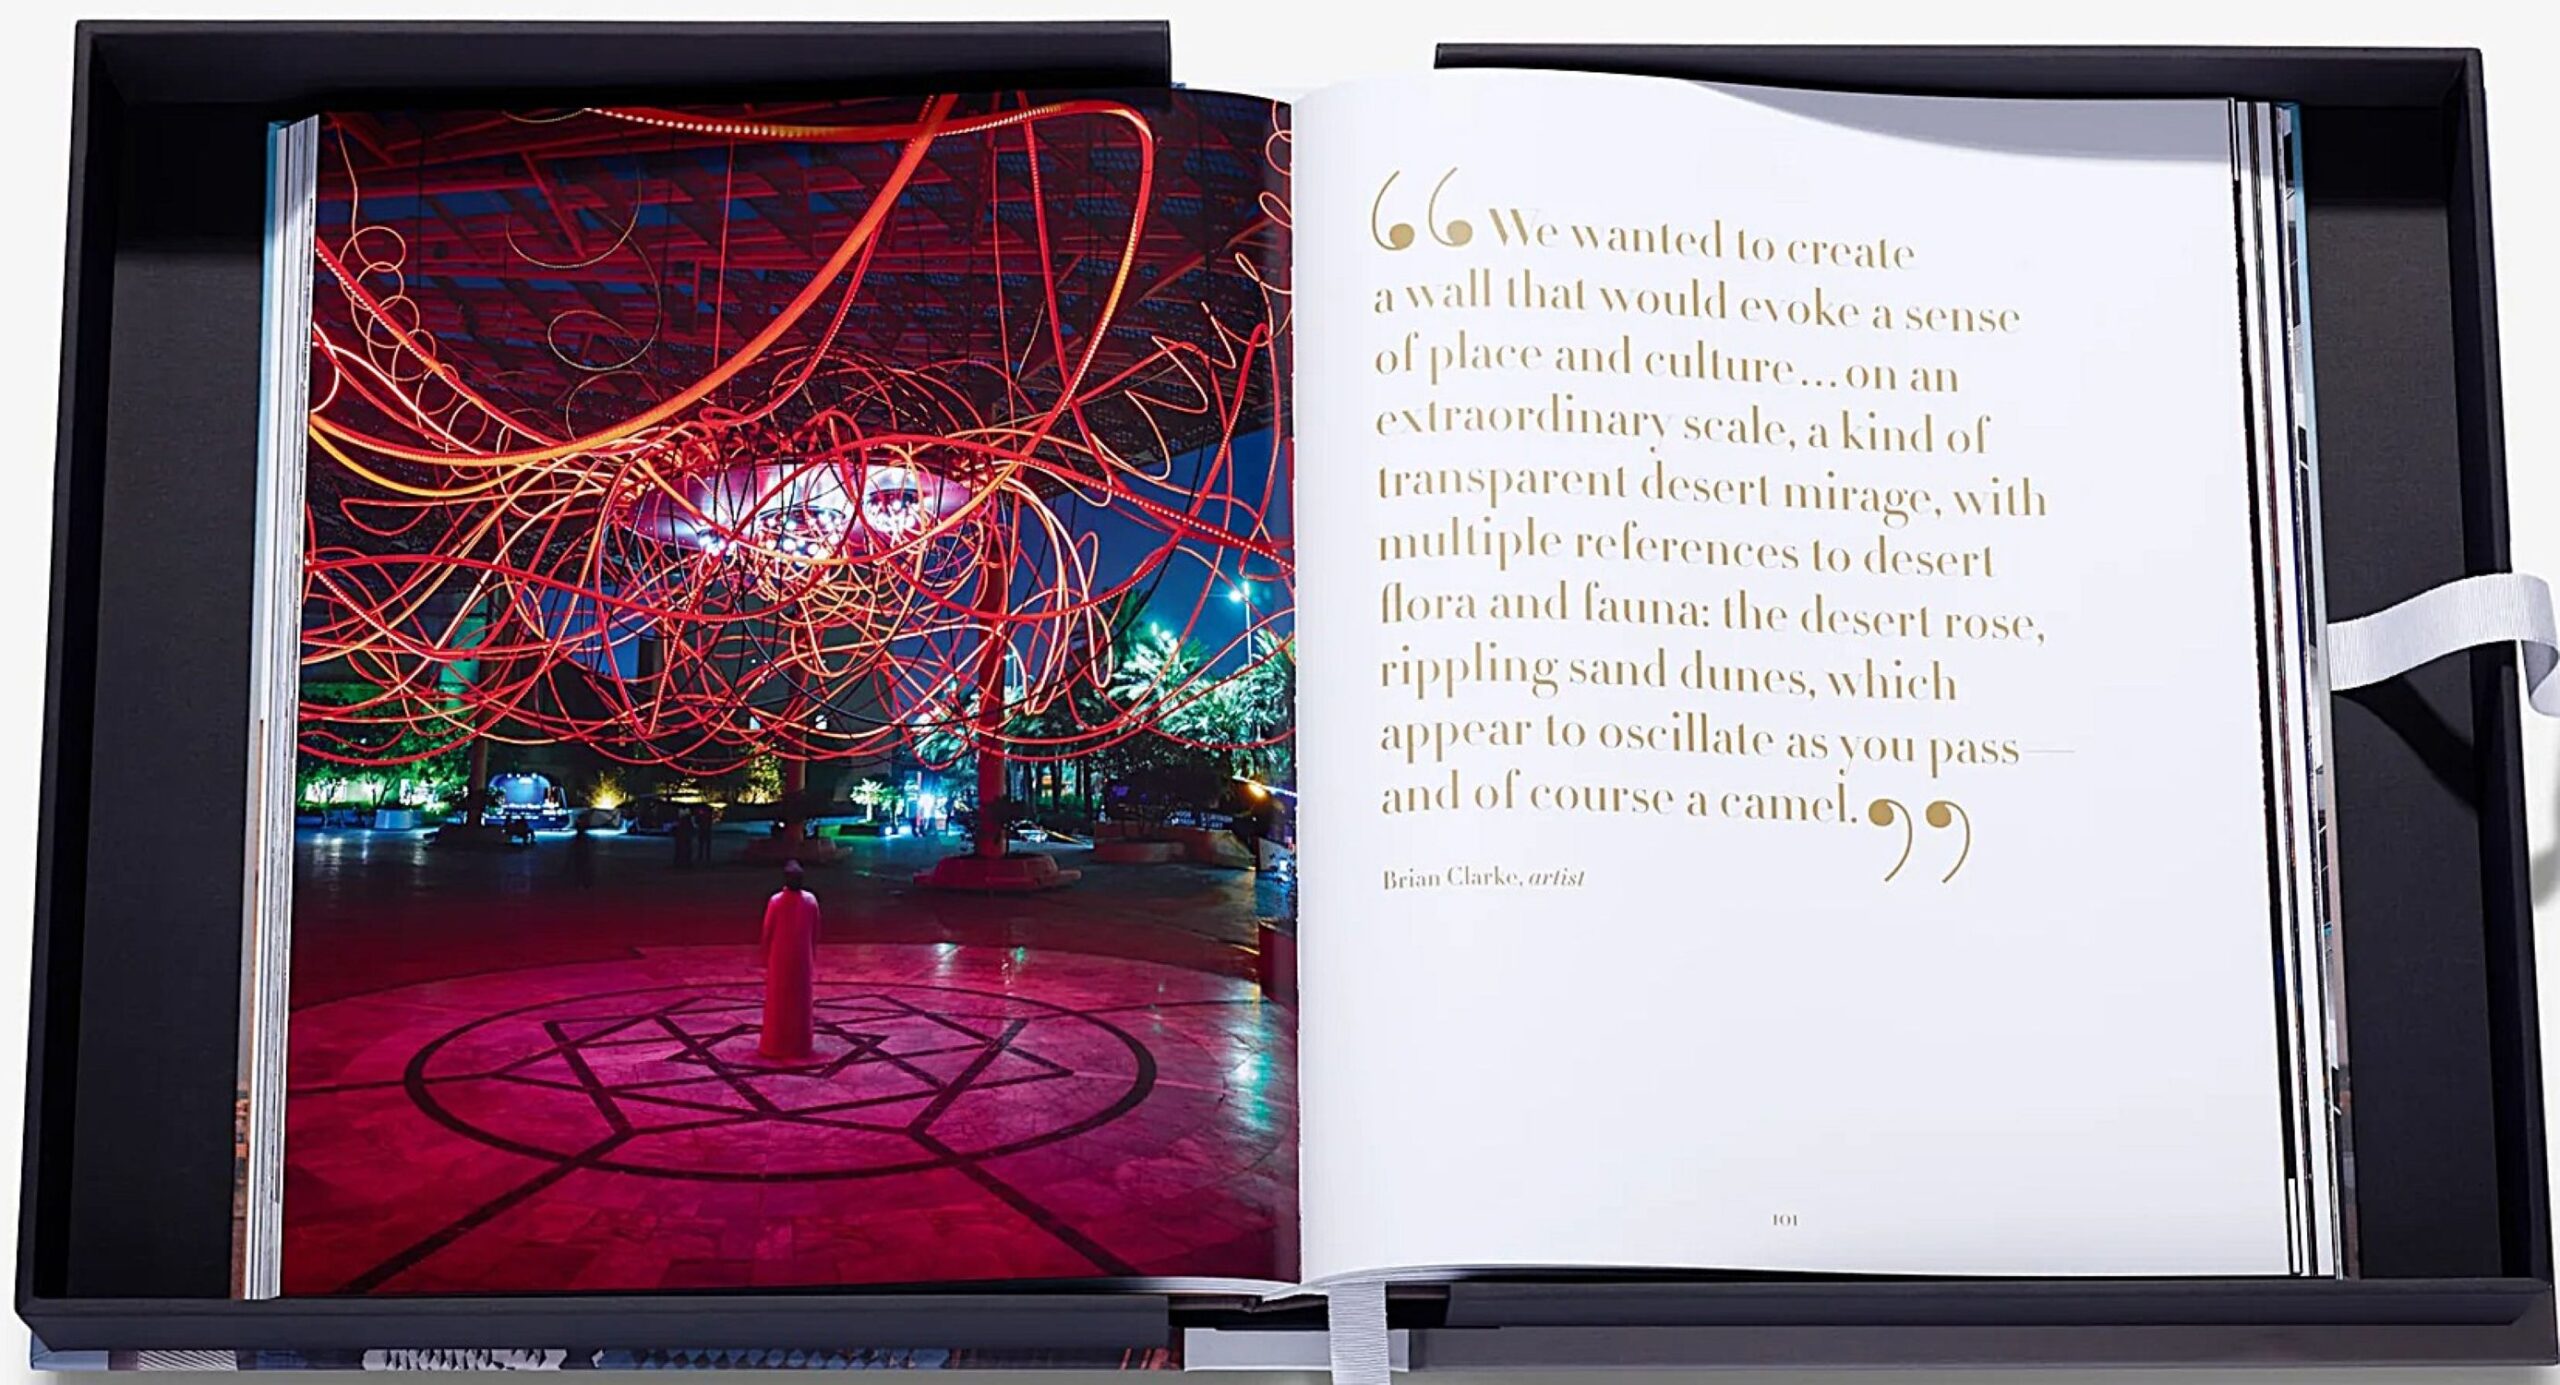 “We wanted to create
a wall that would evoke a sense
of place and culture...on an
extraordinary scale, a kind of
transparent desert mirage, with
multiple references to desert
flora and fauna: the desert rose,
rippling sand dunes, which
appear to oscillate as you pass—
and of course a camel.”
Brian Clarke, artist
101